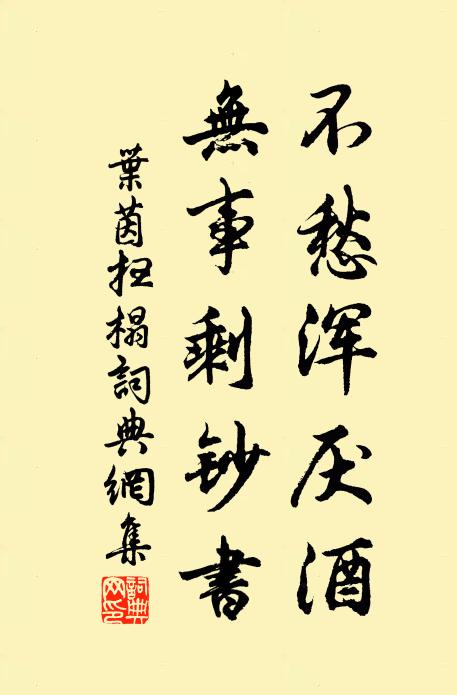 不愁浑厌酒
無事剩鈔書
葉茵扭榻詞典網集
詞典網印